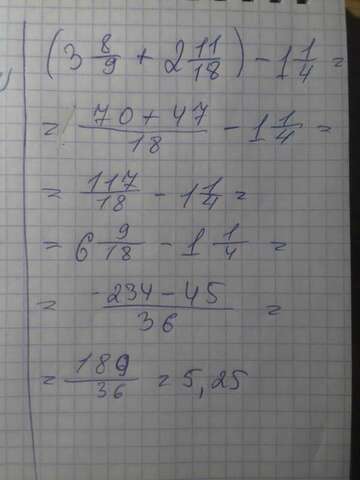 (3 8/9 + 2 11/18) - 1 1/4 =
= 70 + 47/18 - 1 1/4 =
= 117/18 - 1 1/4 =
= 6 9/18 - 1 1/4 =
= -234 - 45/36 =
= 189/36 = 5,25